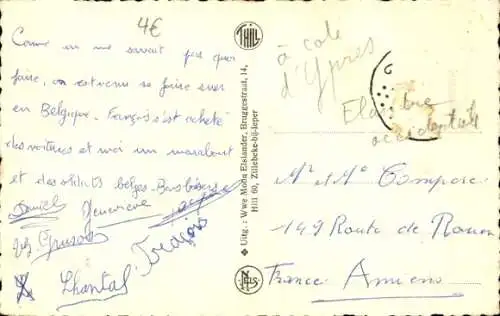 4€
Comme on ne savait pas quoi
faire, on est venu se faire suer
en Belgique. François s'est acheté
des voitures et moi un
et des soldats belges. Bons baisers
Daniel Geneviève
François
Chantal
THILL
Uitg.: Wwe Moha Elslander, Bruggestraat, 14,
Hill 60, Zillebeke-bij-Ieper
NELS
à côté
d'Ypres
Flandre
occidentale
Mr et Me Compere
149 Route de Rouen
France Amiens